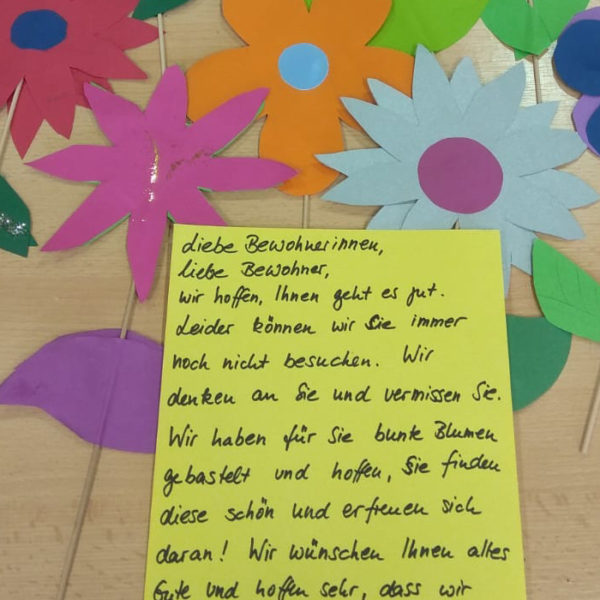 Liebe Bewohnerinnen,
liebe Bewohner,
wir hoffen, Ihnen geht es gut.
Leider können wir Sie immer
noch nicht besuchen. Wir
denken an Sie und vermissen Sie.
Wir haben für Sie bunte Blumen
gebastelt und hoffen, Sie finden
diese schön und erfreuen sich
daran! Wir wünschen Ihnen alles
Gute und hoffen sehr, dass wir